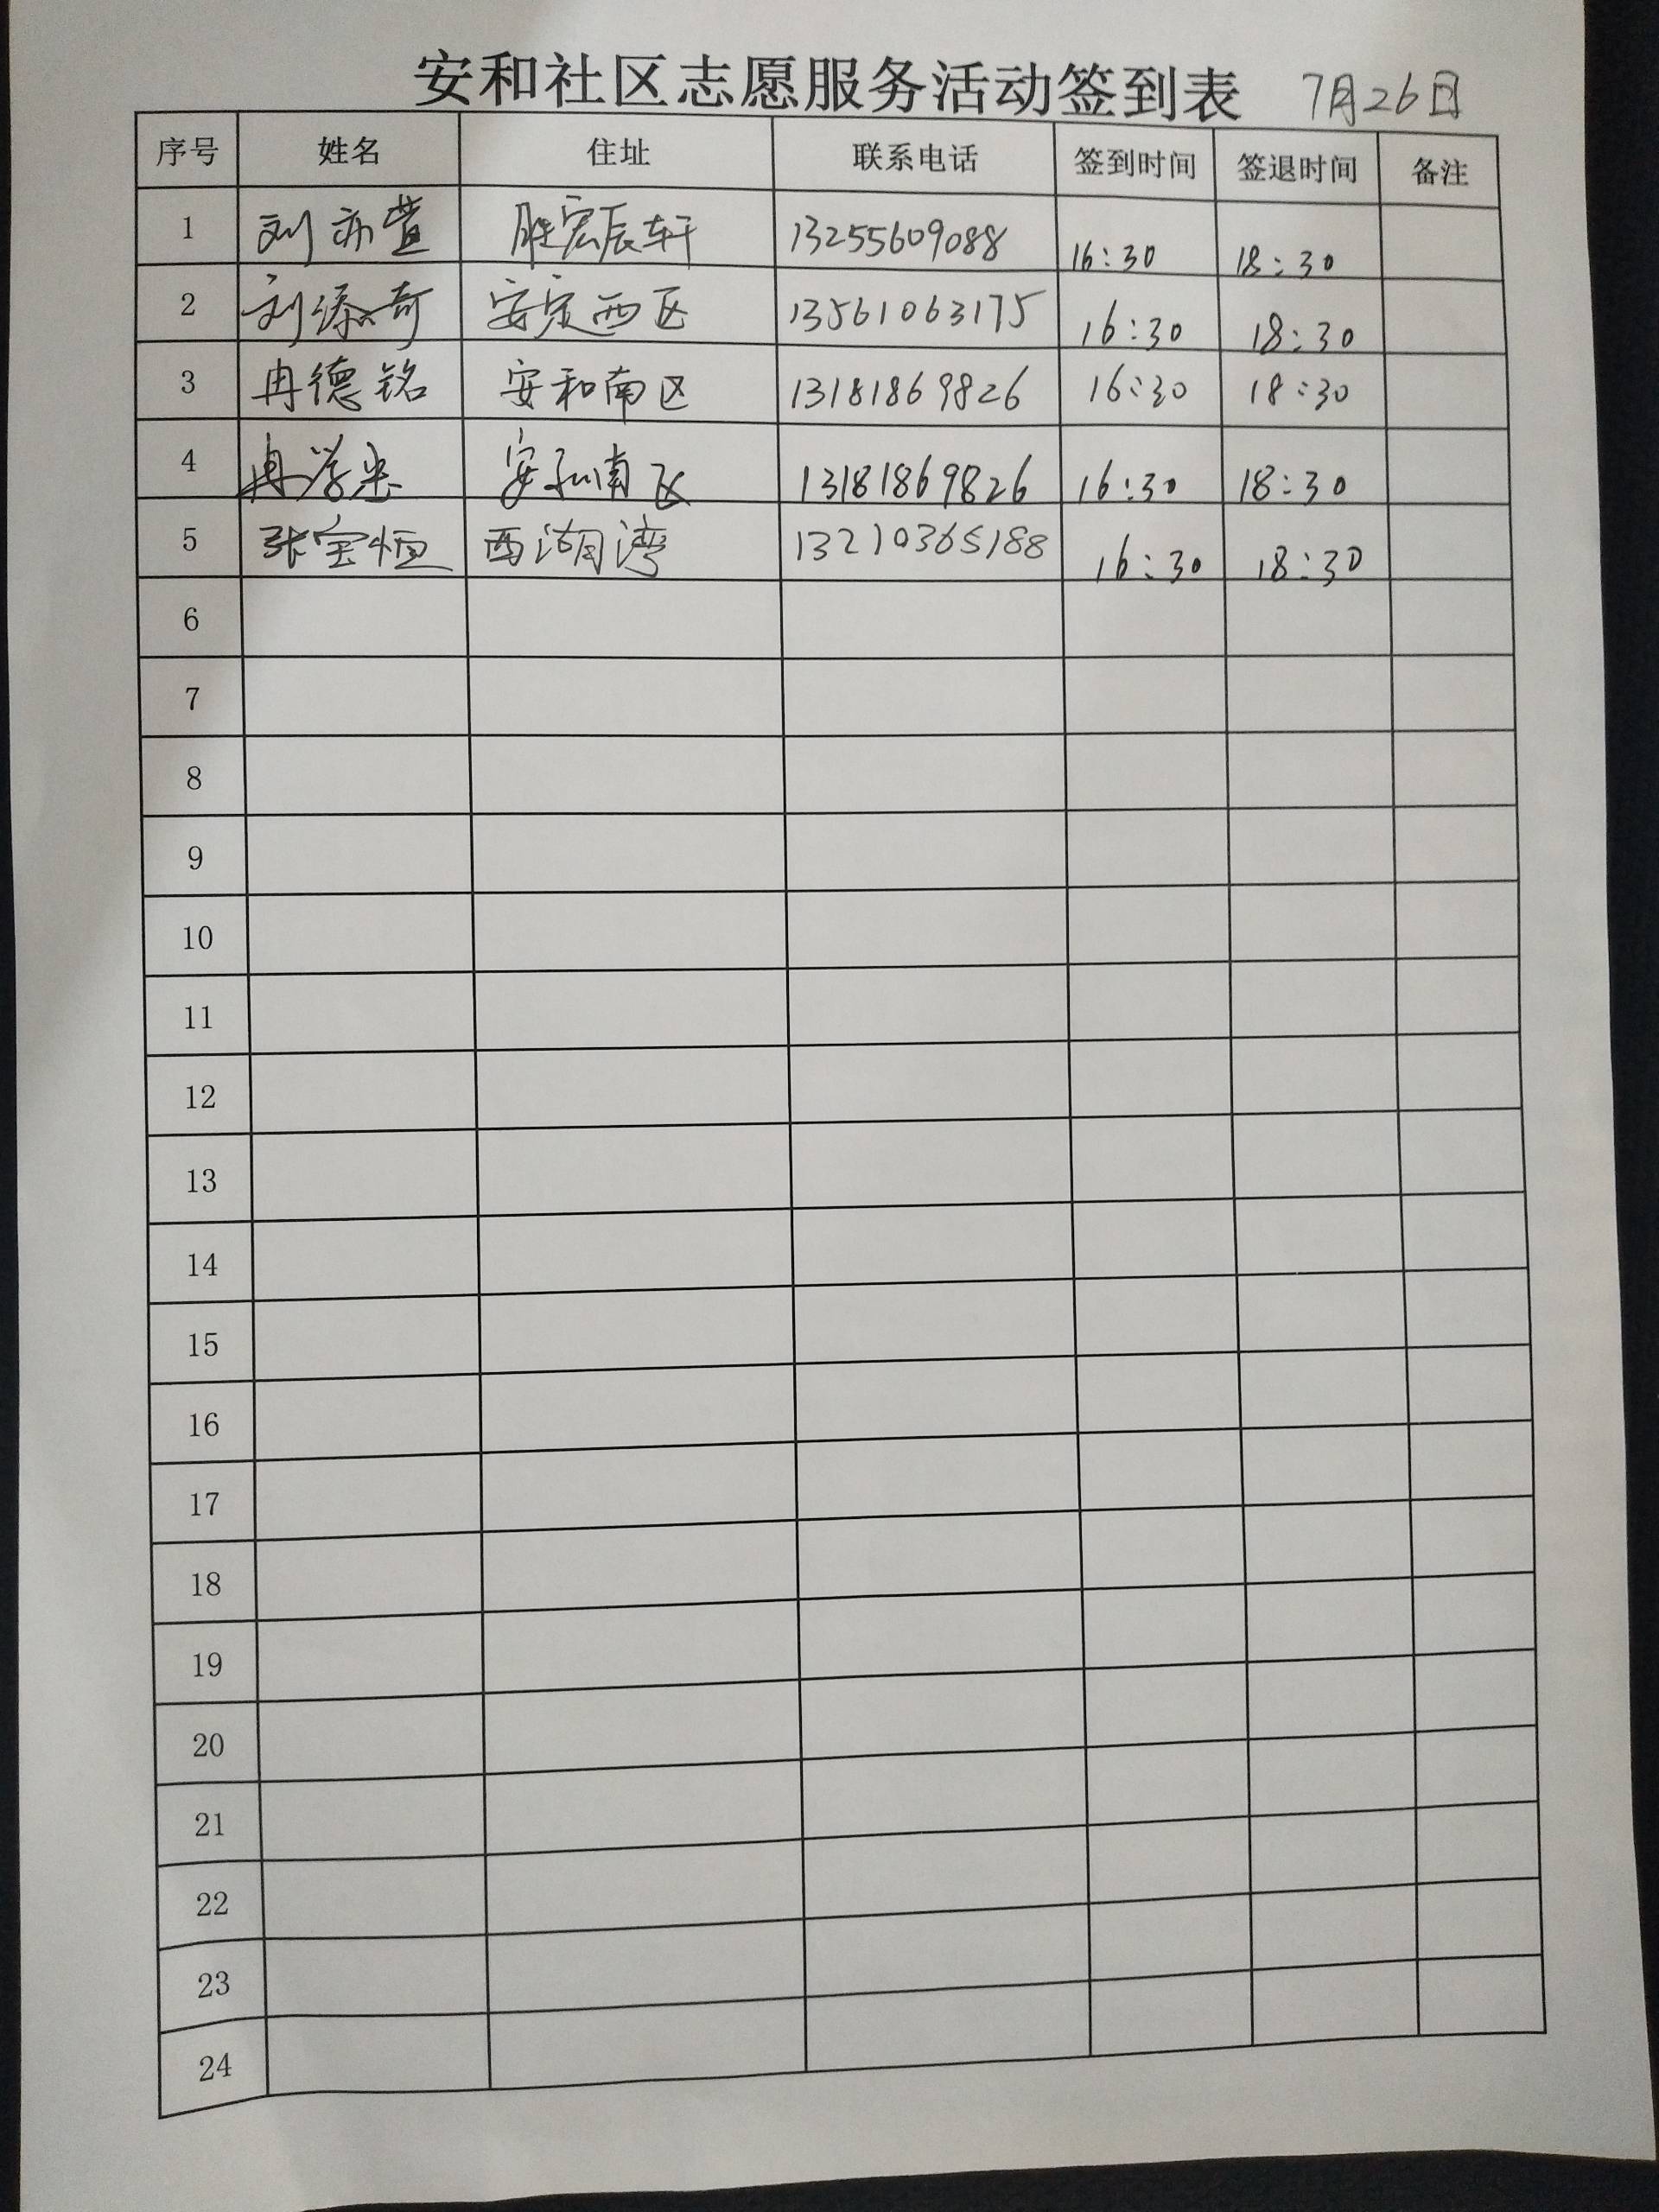 安和社区志愿服务活动签到表 7月26日
序号 姓名 住址 联系电话 签到时间 签退时间 备注
1 刘亦萱 胜宏辰轩 13255609088 16:30 18:30
2 刘添奇 安定西区 13561063175 16:30 18:30
3 冉德铭 安和南区 13181869826 16:30 18:30
4 冉学忠 安和南区 13181869826 16:30 18:30
5 张宝恒 西湖湾 13210365188 16:30 18:30
6
7
8
9
10
11
12
13
14
15
16
17
18
19
20
21
22
23
24